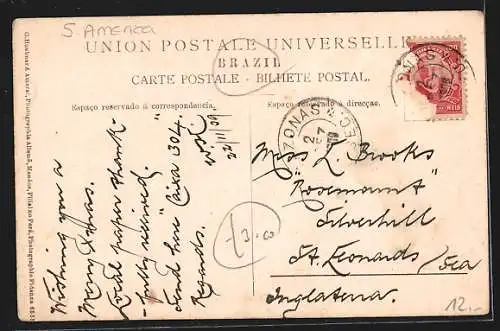 S. AMERICA
UNION POSTALE UNIVERSELLE
BRAZIL
CARTE POSTALE - BILHETE POSTAL.
Espaço reservado á correspondencia.
Espaço reservado á direcçao.
Wishing you a
Merry Xmas.
Local paper thank-
-fully received.
Send here "Caixa 304.
Regards.
22/11/09
£3.00
AZONAS
27
Miss L. Brooks
"Rosemount"
Silverhill
St. Leonards / Sea
Inglaterra.
12,-
G. Huebner & Amaral, Photographia Allemã, Manáos, Filial no Pará, Photographia Fidanza